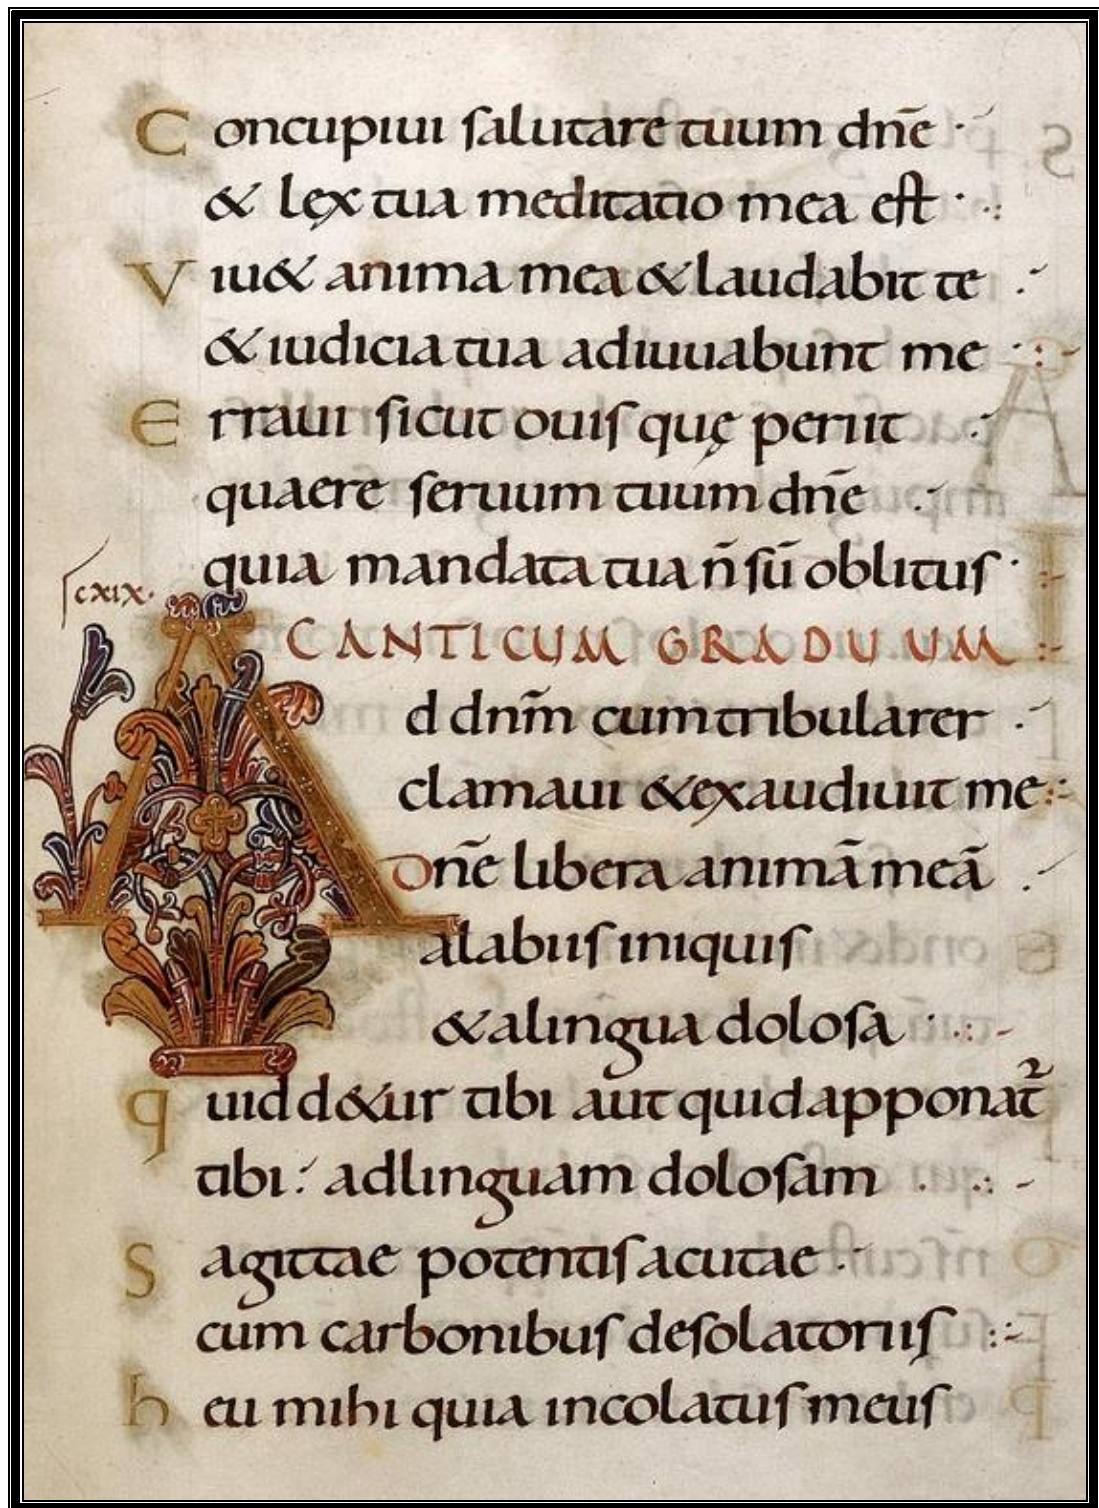 Concupiui salutare tuum dnē
& lęx tua meditatio mea est
Viu& anima mea & laudabit te
& iudicia tua adiuuabunt me
Erraui sicut ouis quę periit
quaere seruum tuum dnē
quia mandata tua n̄ sū oblitus
cxix.
CANTICUM GRADUUM
Ad dnm̄ cum tribularer
clamaui & exaudiuit me
Dnē libera animā meā
alabiis iniquis
& alingua dolosa
quid d&ur tibi aut quid apponat̄
tibi adlinguam dolosam
Sagittae potentis acutae
cum carbonibus desolatoriis
heu mihi quia incolatus meus